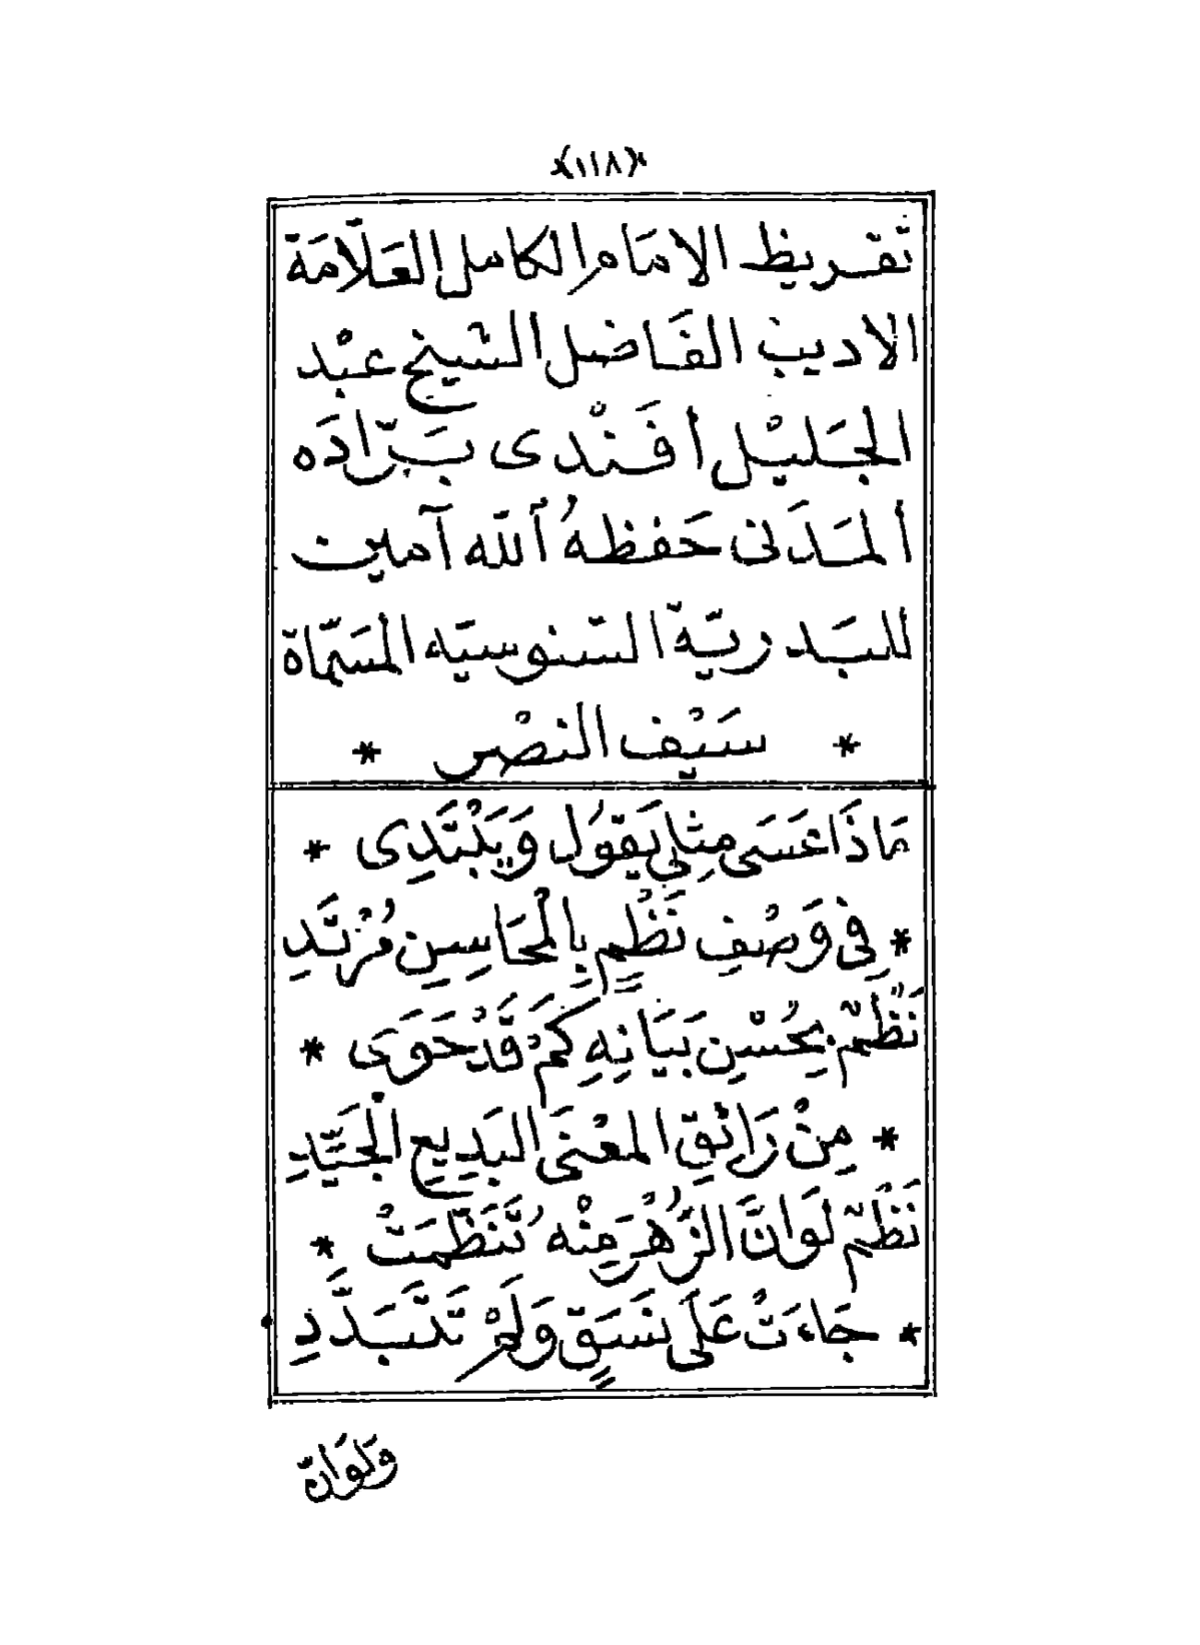 (١١٨)
تَقريظ الامَام الكامل العَلّامَة
الاديب الفَاضل الشيخ عبْد
الجَليْل أفَنْدى بَرّادَه
ألمَدَنى حَفظهُ ٱللّه آمين
للبَدريّة السّنوسيّه المسَمّاة
* سَيْف النصْر *
مَاذَا عَسَى مِثلِي يَقوُل وَيَبْتَدِى *
* فِى وَصْفِ نَظْمٍ بِالْمحَاسِنِ مُرْتَدِ
نَظْمٌ بِحُسْنِ بَيَانِهِ كَمْ قَدْ حَوَى *
* مِنْ رَائِقِ المعْنَى البَدِيعِ الْجَيِّدِ
نَظْمٌ لَوَانَّ الزُّهْرَ مِنْه تَنَظَّمَتْ *
* جَاءَتْ عَلَى نَسَقٍ وَلَمْ تَتَبَدَّدِ
وَلَوَانّ